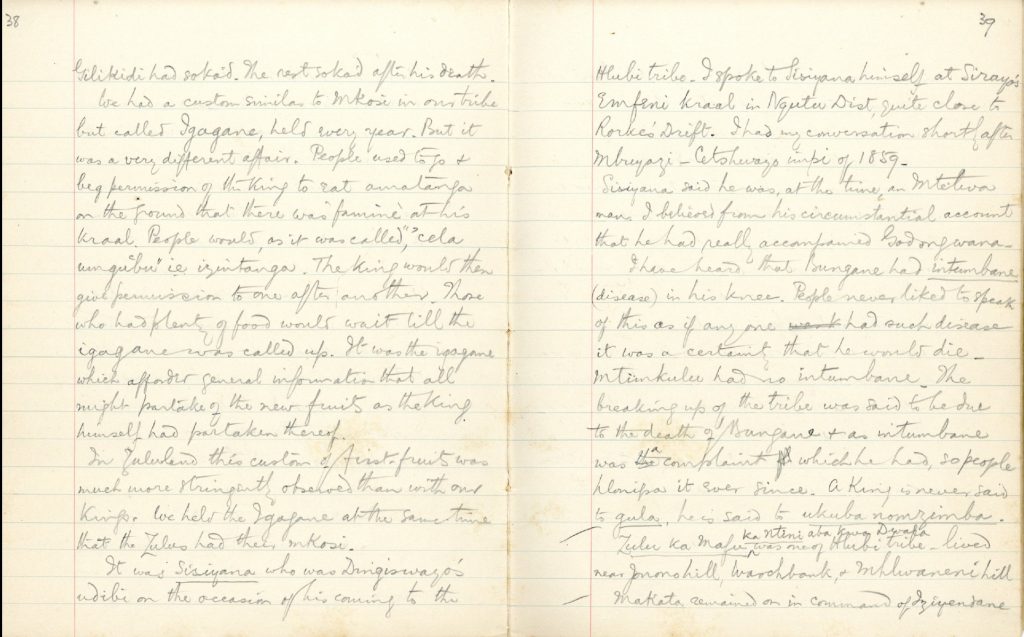 38
Gilikidi had soka'd. The rest soka'd after his death.
We had a custom similar to Mkosi in our tribe
but called Igagane, held every year. But it
was a very different affair. People used to go &
beg permission of the King to eat amatanga
on the ground that there was 'famine' at his
kraal. People would, as it was called, "cela
umgubu" ie izintanga. The King would then
give permission to one after another. Those
who had plenty of food would wait till the
igagane was called up. It was the igagane
which afforded general information that all
might partake of the new fruits as the King
himself had partaken thereof.
In Zululand this custom of first-fruits was
much more stringently observed than with our
Kings. We held the Igagane at the same time
that the Zulus had their mkosi.
It was Sisiyana who was Dingiswayo's
udibi on the occasion of his coming to the
39
Hlubi tribe. I spoke to Sisiyana himself at Sirayo's
Emfeni Kraal in Nqutu Dist, quite close to
Rorke's Drift. I had my conversation shortly after
Mbuyazi - Cetshwayo impi of 1859 -
Sisiyana said he was, at the time, an Mtetwa
man. I believed from his circumstantial account
that he had really accompanied Godongwana -
I have heard that Bungane had intumbane
(disease) in his knee. People never liked to speak
of this as if any one had such disease
it was a certainty that he would die -
Mtimkulu had no intumbane. The
breaking up of the tribe was said to be due
to the death of Bungane & as intumbane
was a complaint which he had, so people
hlonipa it ever since. A King is never said
to gula, he is said to ukuba nomzimba.
ka Ntini aba kwa Dwafa
Zulu ka Mafu was one of Hlubi tribe - lived
near Jonono hill, Waschbank, & Mhlwaneni hill
Makata remained on in command of Iziyendane